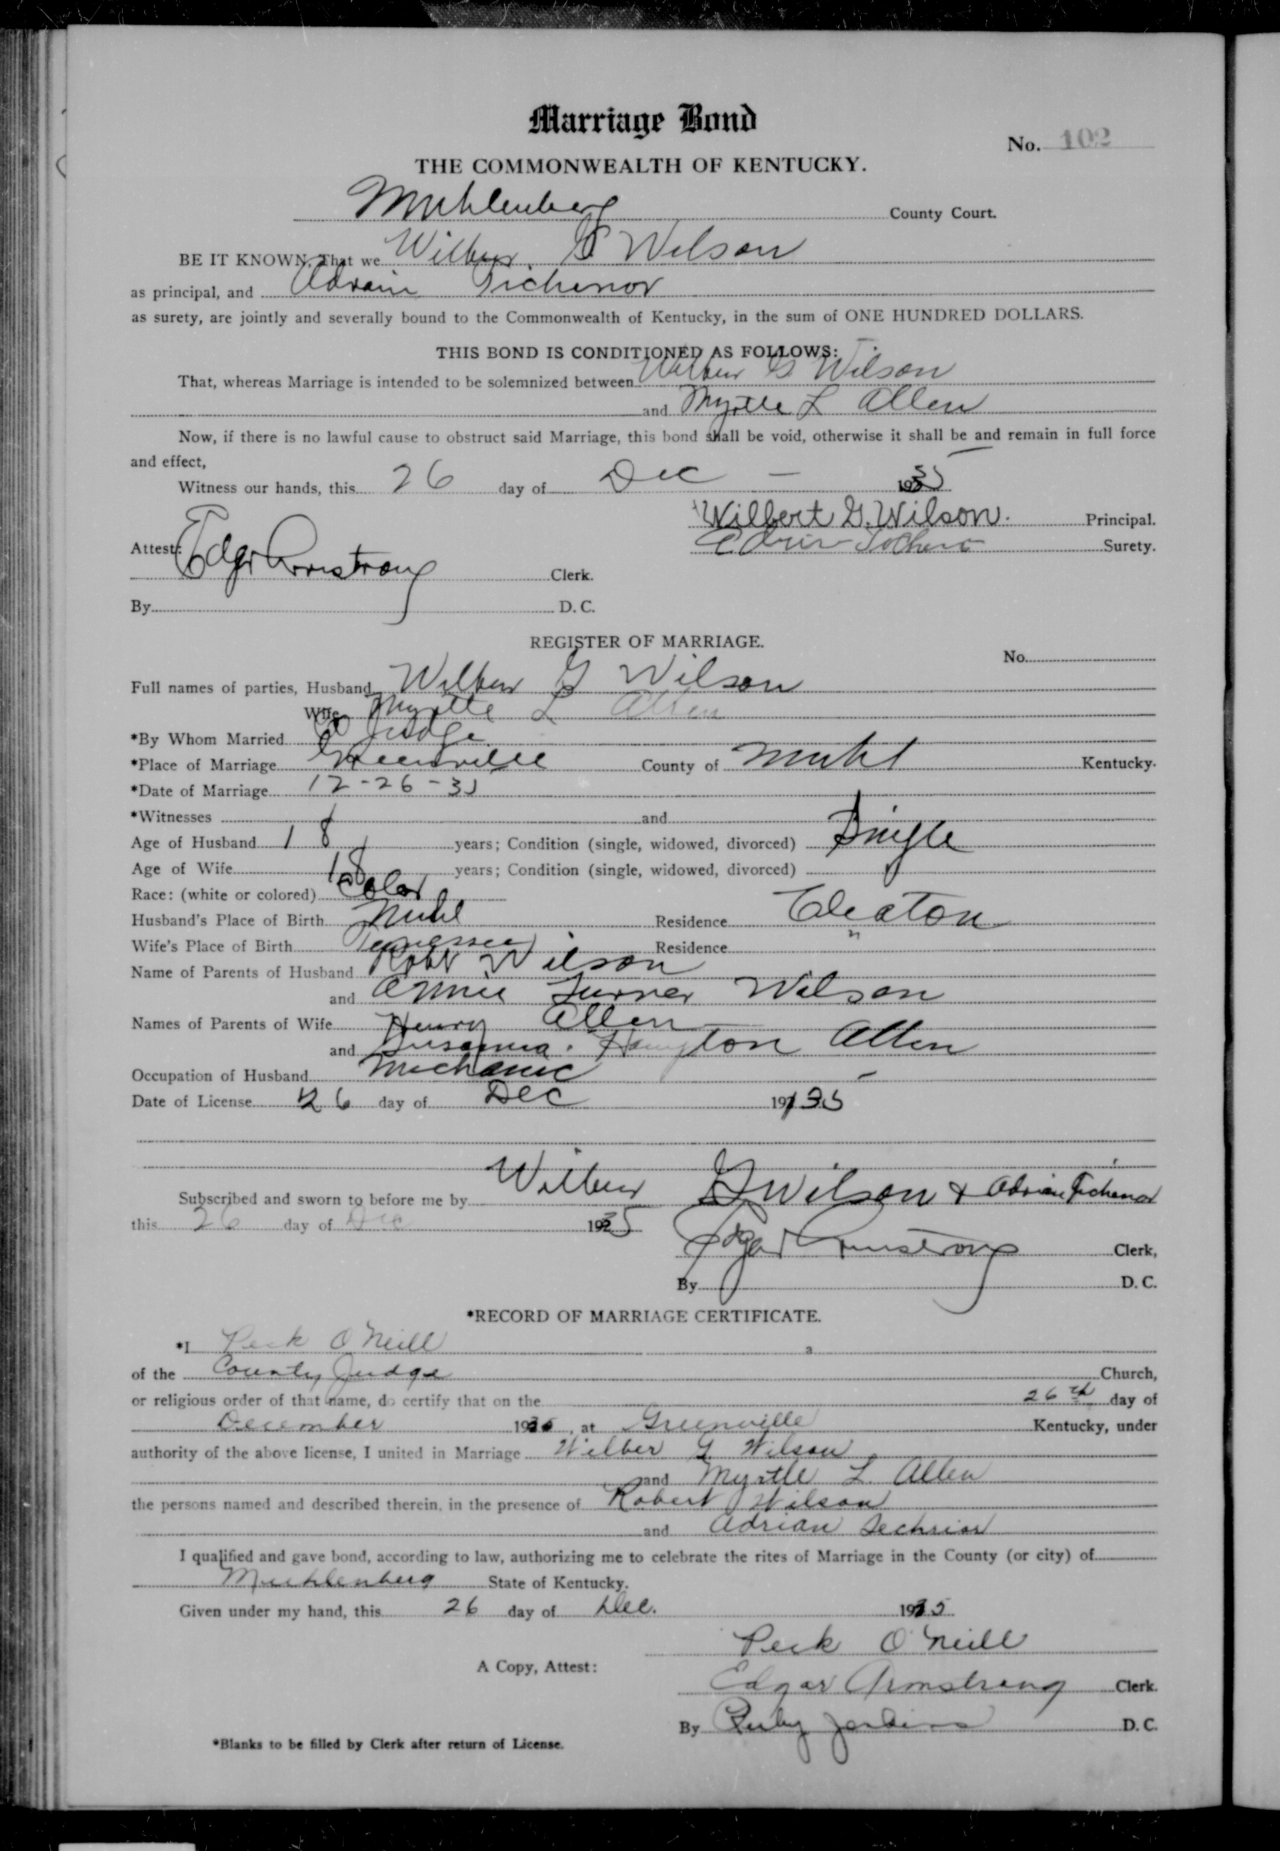 Marriage Bond
No. 102
THE COMMONWEALTH OF KENTUCKY.
Muhlenberg County Court.
BE IT KNOWN, That we Wilbur G Wilson
as principal, and Adrain Tichenor
as surety, are jointly and severally bound to the Commonwealth of Kentucky, in the sum of ONE HUNDRED DOLLARS.
THIS BOND IS CONDITIONED AS FOLLOWS:
That, whereas Marriage is intended to be solemnized between Wilbur G Wilson
and Myrtle L Allen
Now, if there is no lawful cause to obstruct said Marriage, this bond shall be void, otherwise it shall be and remain in full force
and effect,
Witness our hands, this 26 day of Dec - 1935
Wilbert G. Wilson. Principal.
Surety.
Attest: Edgar Armstrong Clerk.
By D. C.
REGISTER OF MARRIAGE.
No.
Full names of parties, Husband Wilbur G Wilson
Wife Myrtle L Allen
*By Whom Married Co Judge
*Place of Marriage Greenville County of Muhl Kentucky.
*Date of Marriage 12-26-35
*Witnesses and
Age of Husband 18 years; Condition (single, widowed, divorced) Single
Age of Wife 18 years; Condition (single, widowed, divorced)
Race: (white or colored) Color
Husband's Place of Birth Muhl Residence Cleaton
Wife's Place of Birth Tennessee Residence "
Name of Parents of Husband Robt Wilson
and Annie Turner Wilson
Names of Parents of Wife Henry Allen
and Susanna Hampton Allen
Occupation of Husband Mechanic
Date of License 26 day of Dec 1935
Subscribed and sworn to before me by Wilbur G Wilson & Adrian Tichenor
this 26 day of Dec 1935
Edgar Armstrong Clerk,
By D. C.
*RECORD OF MARRIAGE CERTIFICATE.
*I Peck O'Neill a
of the County Judge Church,
or religious order of that name, do certify that on the 26th day of
December 1935, at Greenville Kentucky, under
authority of the above license, I united in Marriage Wilber G Wilson
and Myrtle L. Allen
the persons named and described therein, in the presence of Robert Wilson
and Adrian
I qualified and gave bond, according to law, authorizing me to celebrate the rites of Marriage in the County (or city) of
Muhlenberg State of Kentucky.
Given under my hand, this 26 day of Dec. 1935
Peck O'Neill
A Copy, Attest:
Edgar Armstrong Clerk.
By Ruby Jenkins D. C.
*Blanks to be filled by Clerk after return of License.